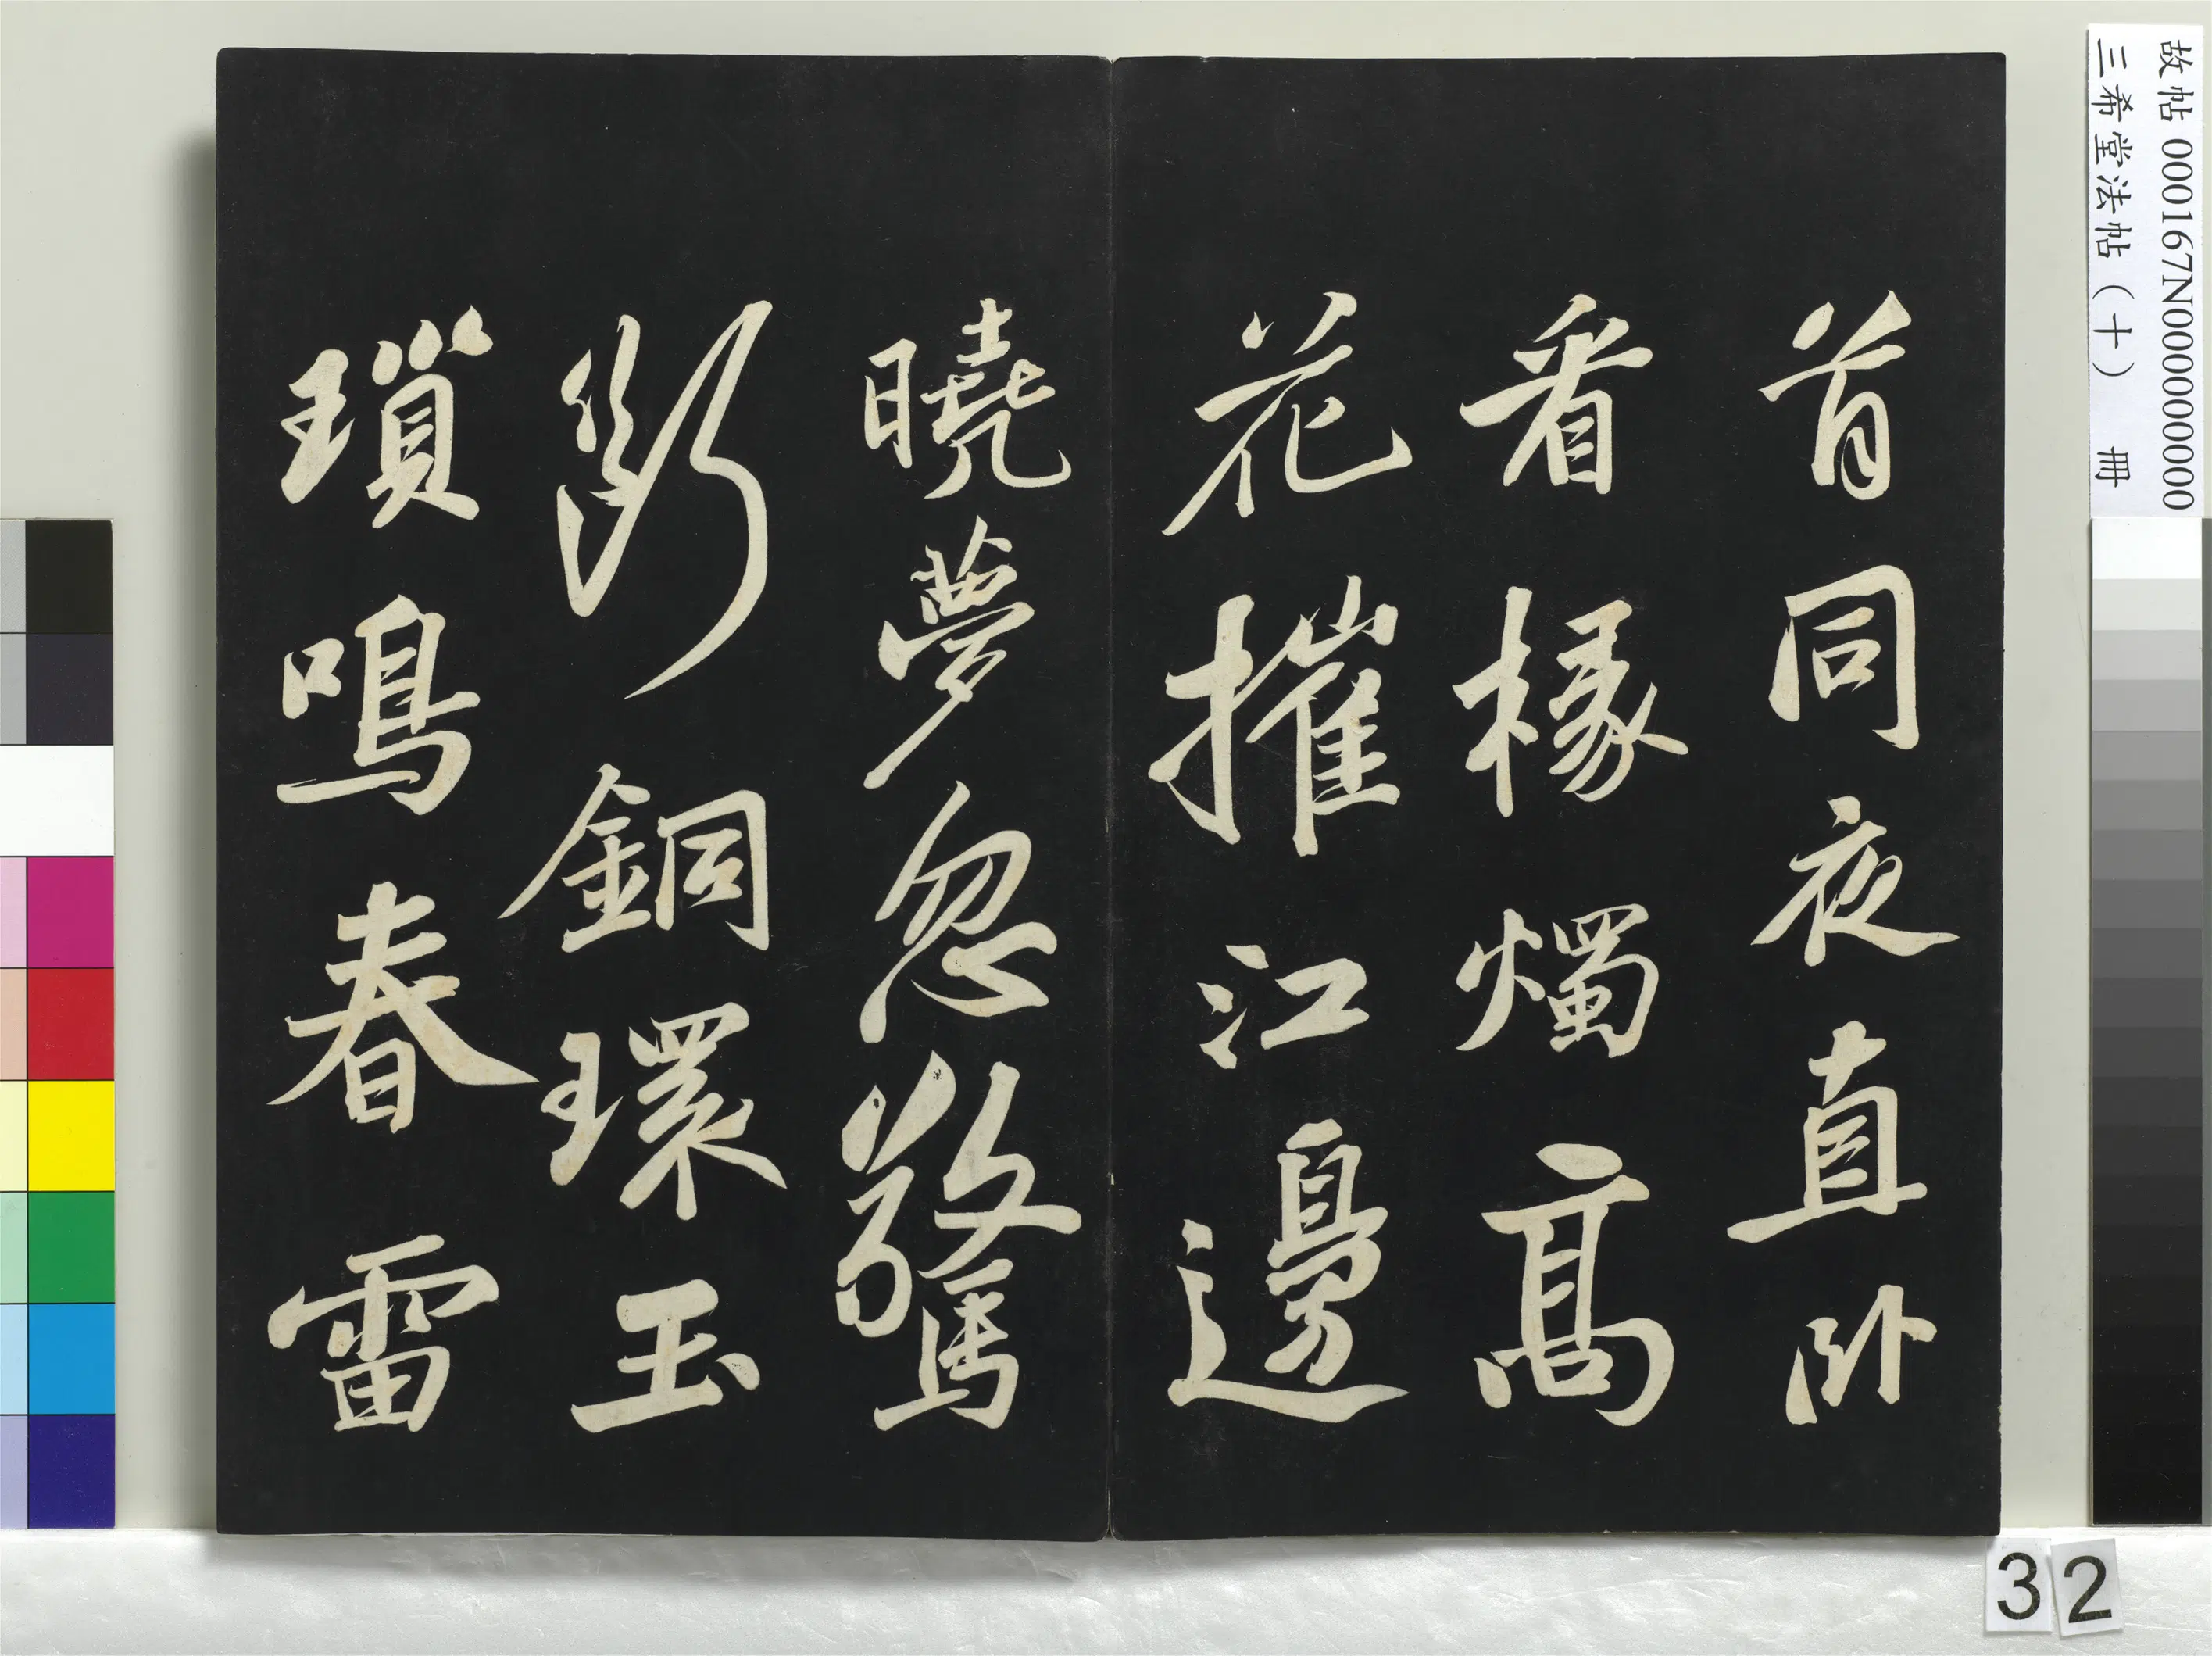 故帖 000167N000000000
三希堂法帖（十） 冊
首同夜直卧
看椽燭高
花摧江邊
曉夢忽驚
斷銅環玉
瑣鳴春雷
32